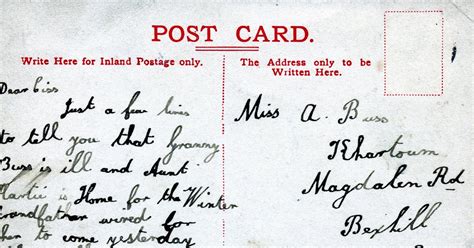 POST CARD.
Write Here for Inland Postage only.
The Address only to be
Written Here.
Dear Ciss
Just a few lines
to tell you that Granny
Buss is ill and Aunt
Martie is Home for the Winter
Grandfather wired for
her to come yesterday
Miss A. Buss
Khartoum
Magdalen Rd
Bexhill